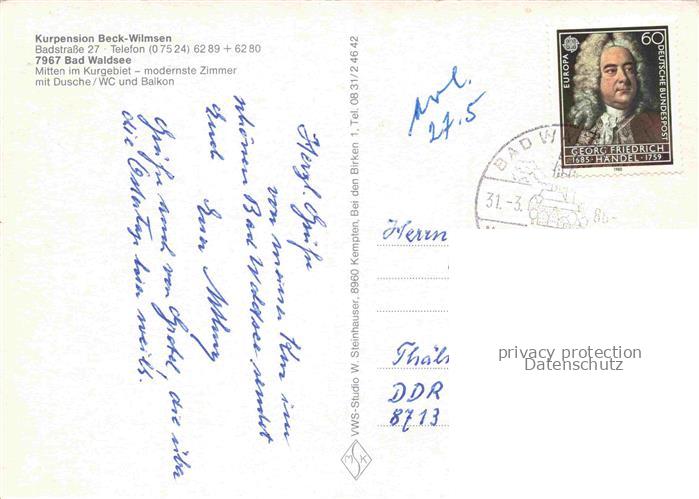 Kurpension Beck-Wilmsen
Badstraße 27 · Telefon (0 75 24) 62 89 + 62 80
7967 Bad Waldsee
Mitten im Kurgebiet – modernste Zimmer
mit Dusche/WC und Balkon
Herzl. Grüße
von meiner Kur im
schönen Bad Waldsee sendet
Euch Euer
Grüße auch von Gretel, die über
die Ostertage hier weilt.
VWS-Studio W. Steinhauser, 8960 Kempten, Bei den Birken 1, Tel. 08 31/2 46 42
27.5
EUROPA
60
DEUTSCHE BUNDESPOST
GEORG FRIEDRICH
1685 · HÄNDEL · 1759
1985
BAD W
31.-3.
86-
Herrn
Thäl
DDR
8713
privacy protection
Datenschutz